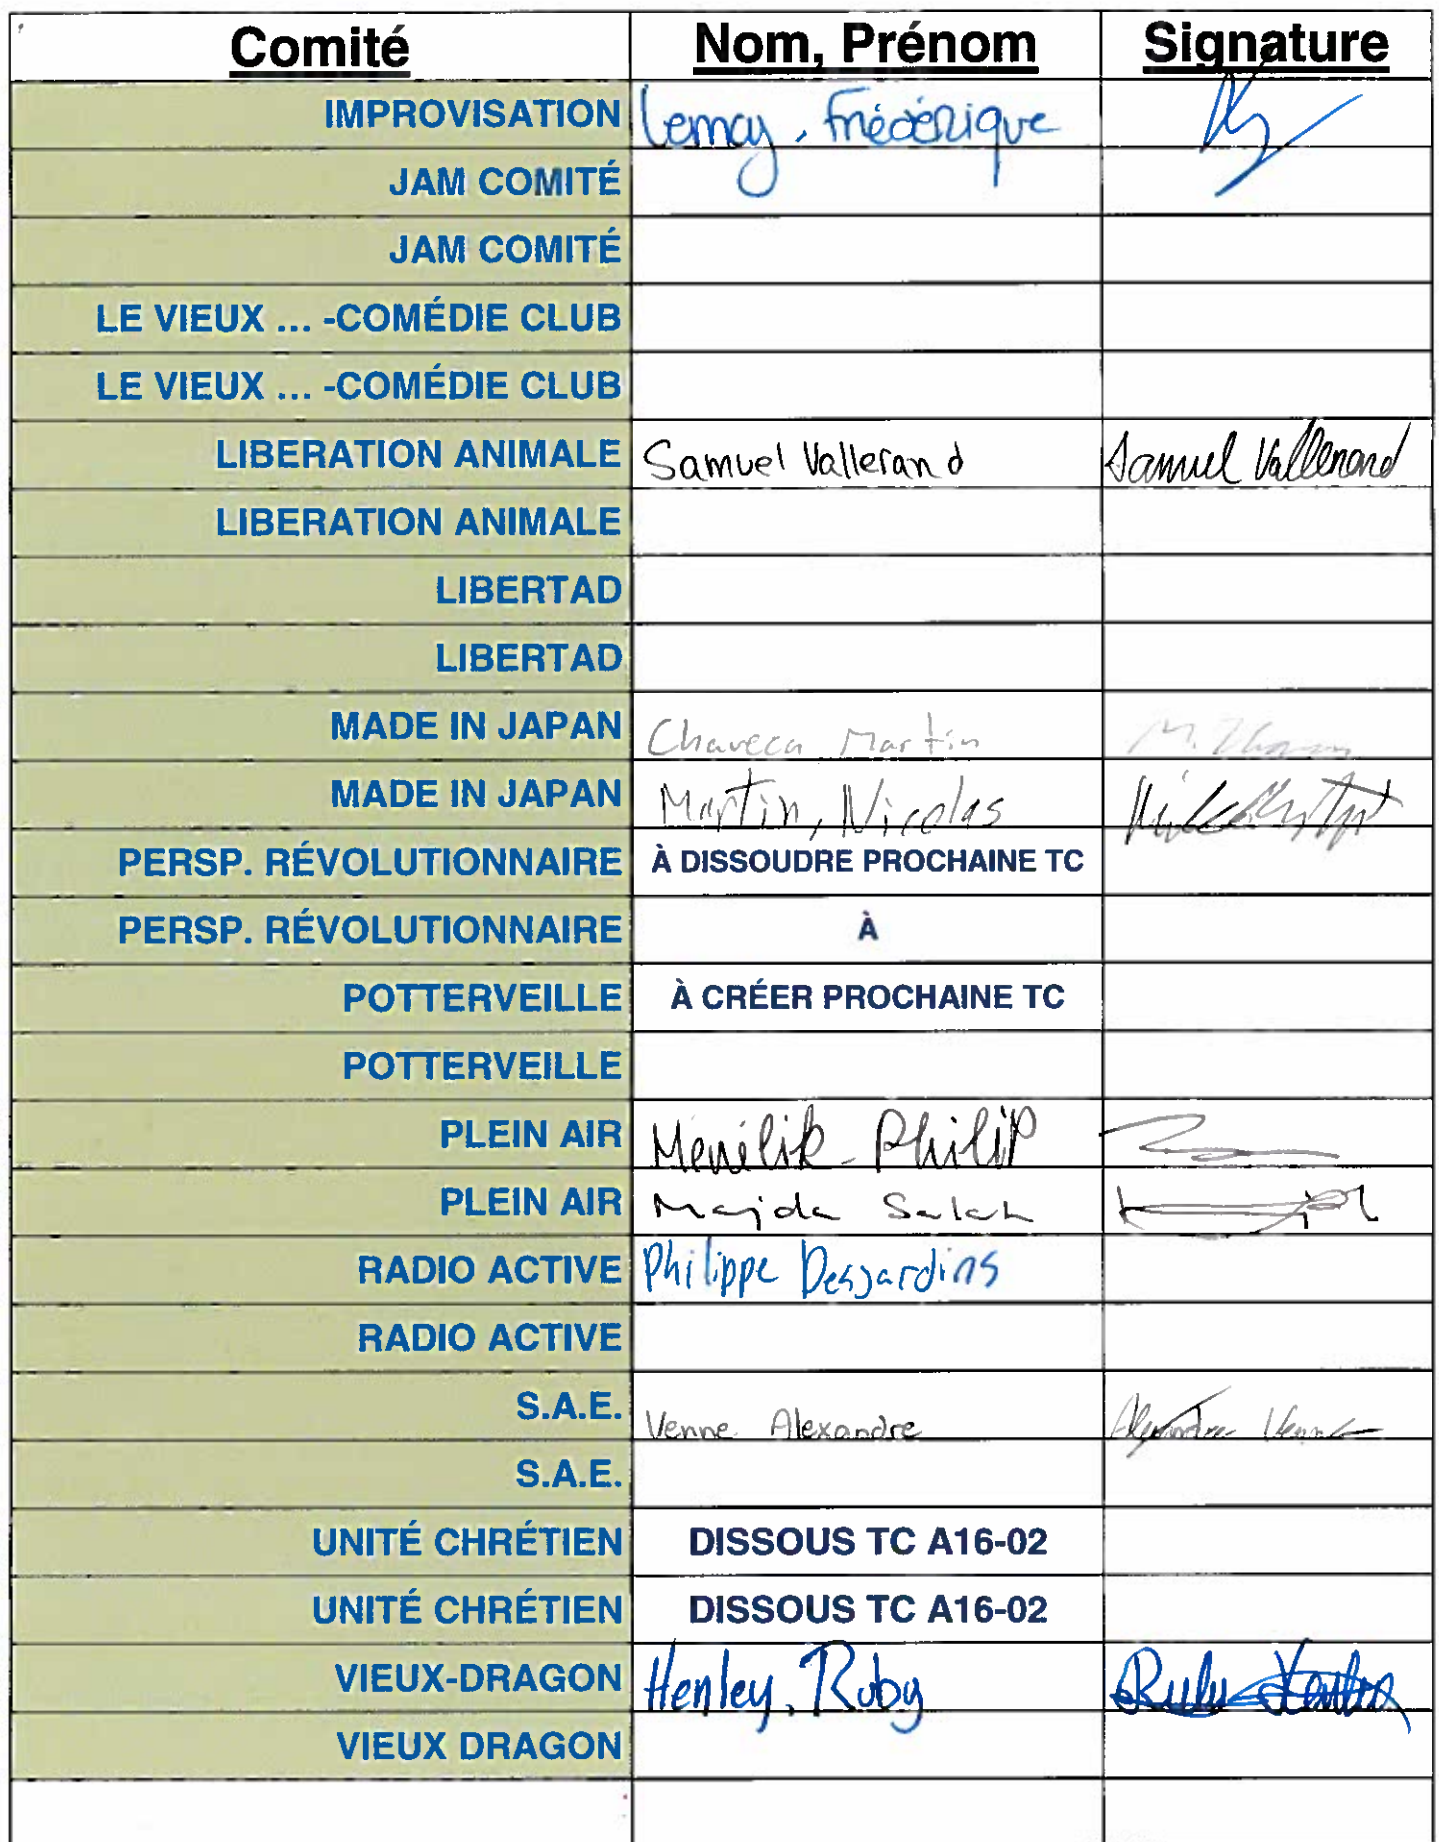 Comité Nom, Prénom Signature
IMPROVISATION Lemay, Frédérique
JAM COMITÉ
JAM COMITÉ
LE VIEUX ... -COMÉDIE CLUB
LE VIEUX ... -COMÉDIE CLUB
LIBERATION ANIMALE Samuel Vallerand Samuel Vallerand
LIBERATION ANIMALE
LIBERTAD
LIBERTAD
MADE IN JAPAN Martin
MADE IN JAPAN Martin, Nicolas
PERSP. RÉVOLUTIONNAIRE À DISSOUDRE PROCHAINE TC
PERSP. RÉVOLUTIONNAIRE À
POTTERVEILLE À CRÉER PROCHAINE TC
POTTERVEILLE
PLEIN AIR Menélik Philip
PLEIN AIR Majda Salah
RADIO ACTIVE Philippe Desjardins
RADIO ACTIVE
S.A.E. Venne Alexandre Alexandre Venne
S.A.E.
UNITÉ CHRÉTIEN DISSOUS TC A16-02
UNITÉ CHRÉTIEN DISSOUS TC A16-02
VIEUX-DRAGON Henley, Ruby
VIEUX DRAGON